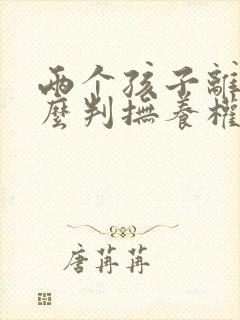 两个孩子離
麼判撫養權
唐苒苒